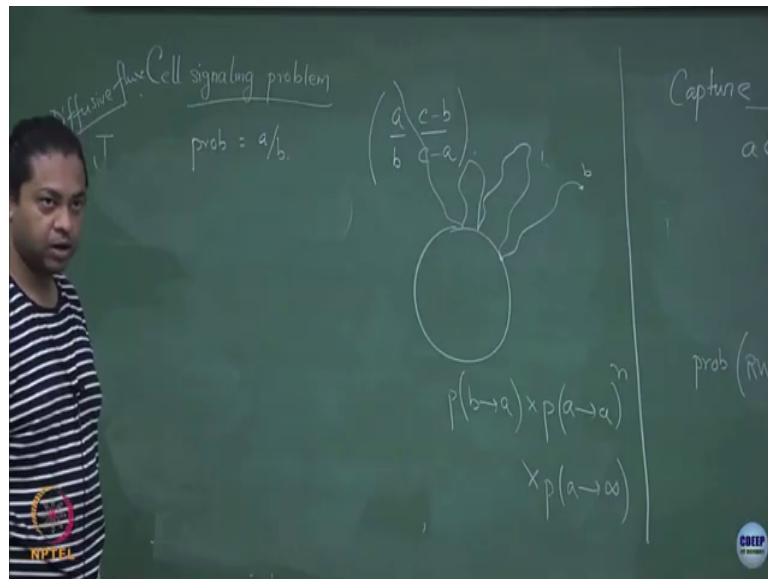 Diffusive flux
J
Cell signaling problem
prob = a/b.
(a/b c-b/c-a)
b
p(b→a) × p(a→a)^n
× p(a→∞)
Capture
a
prob (RW
NPTEL
CDEEP